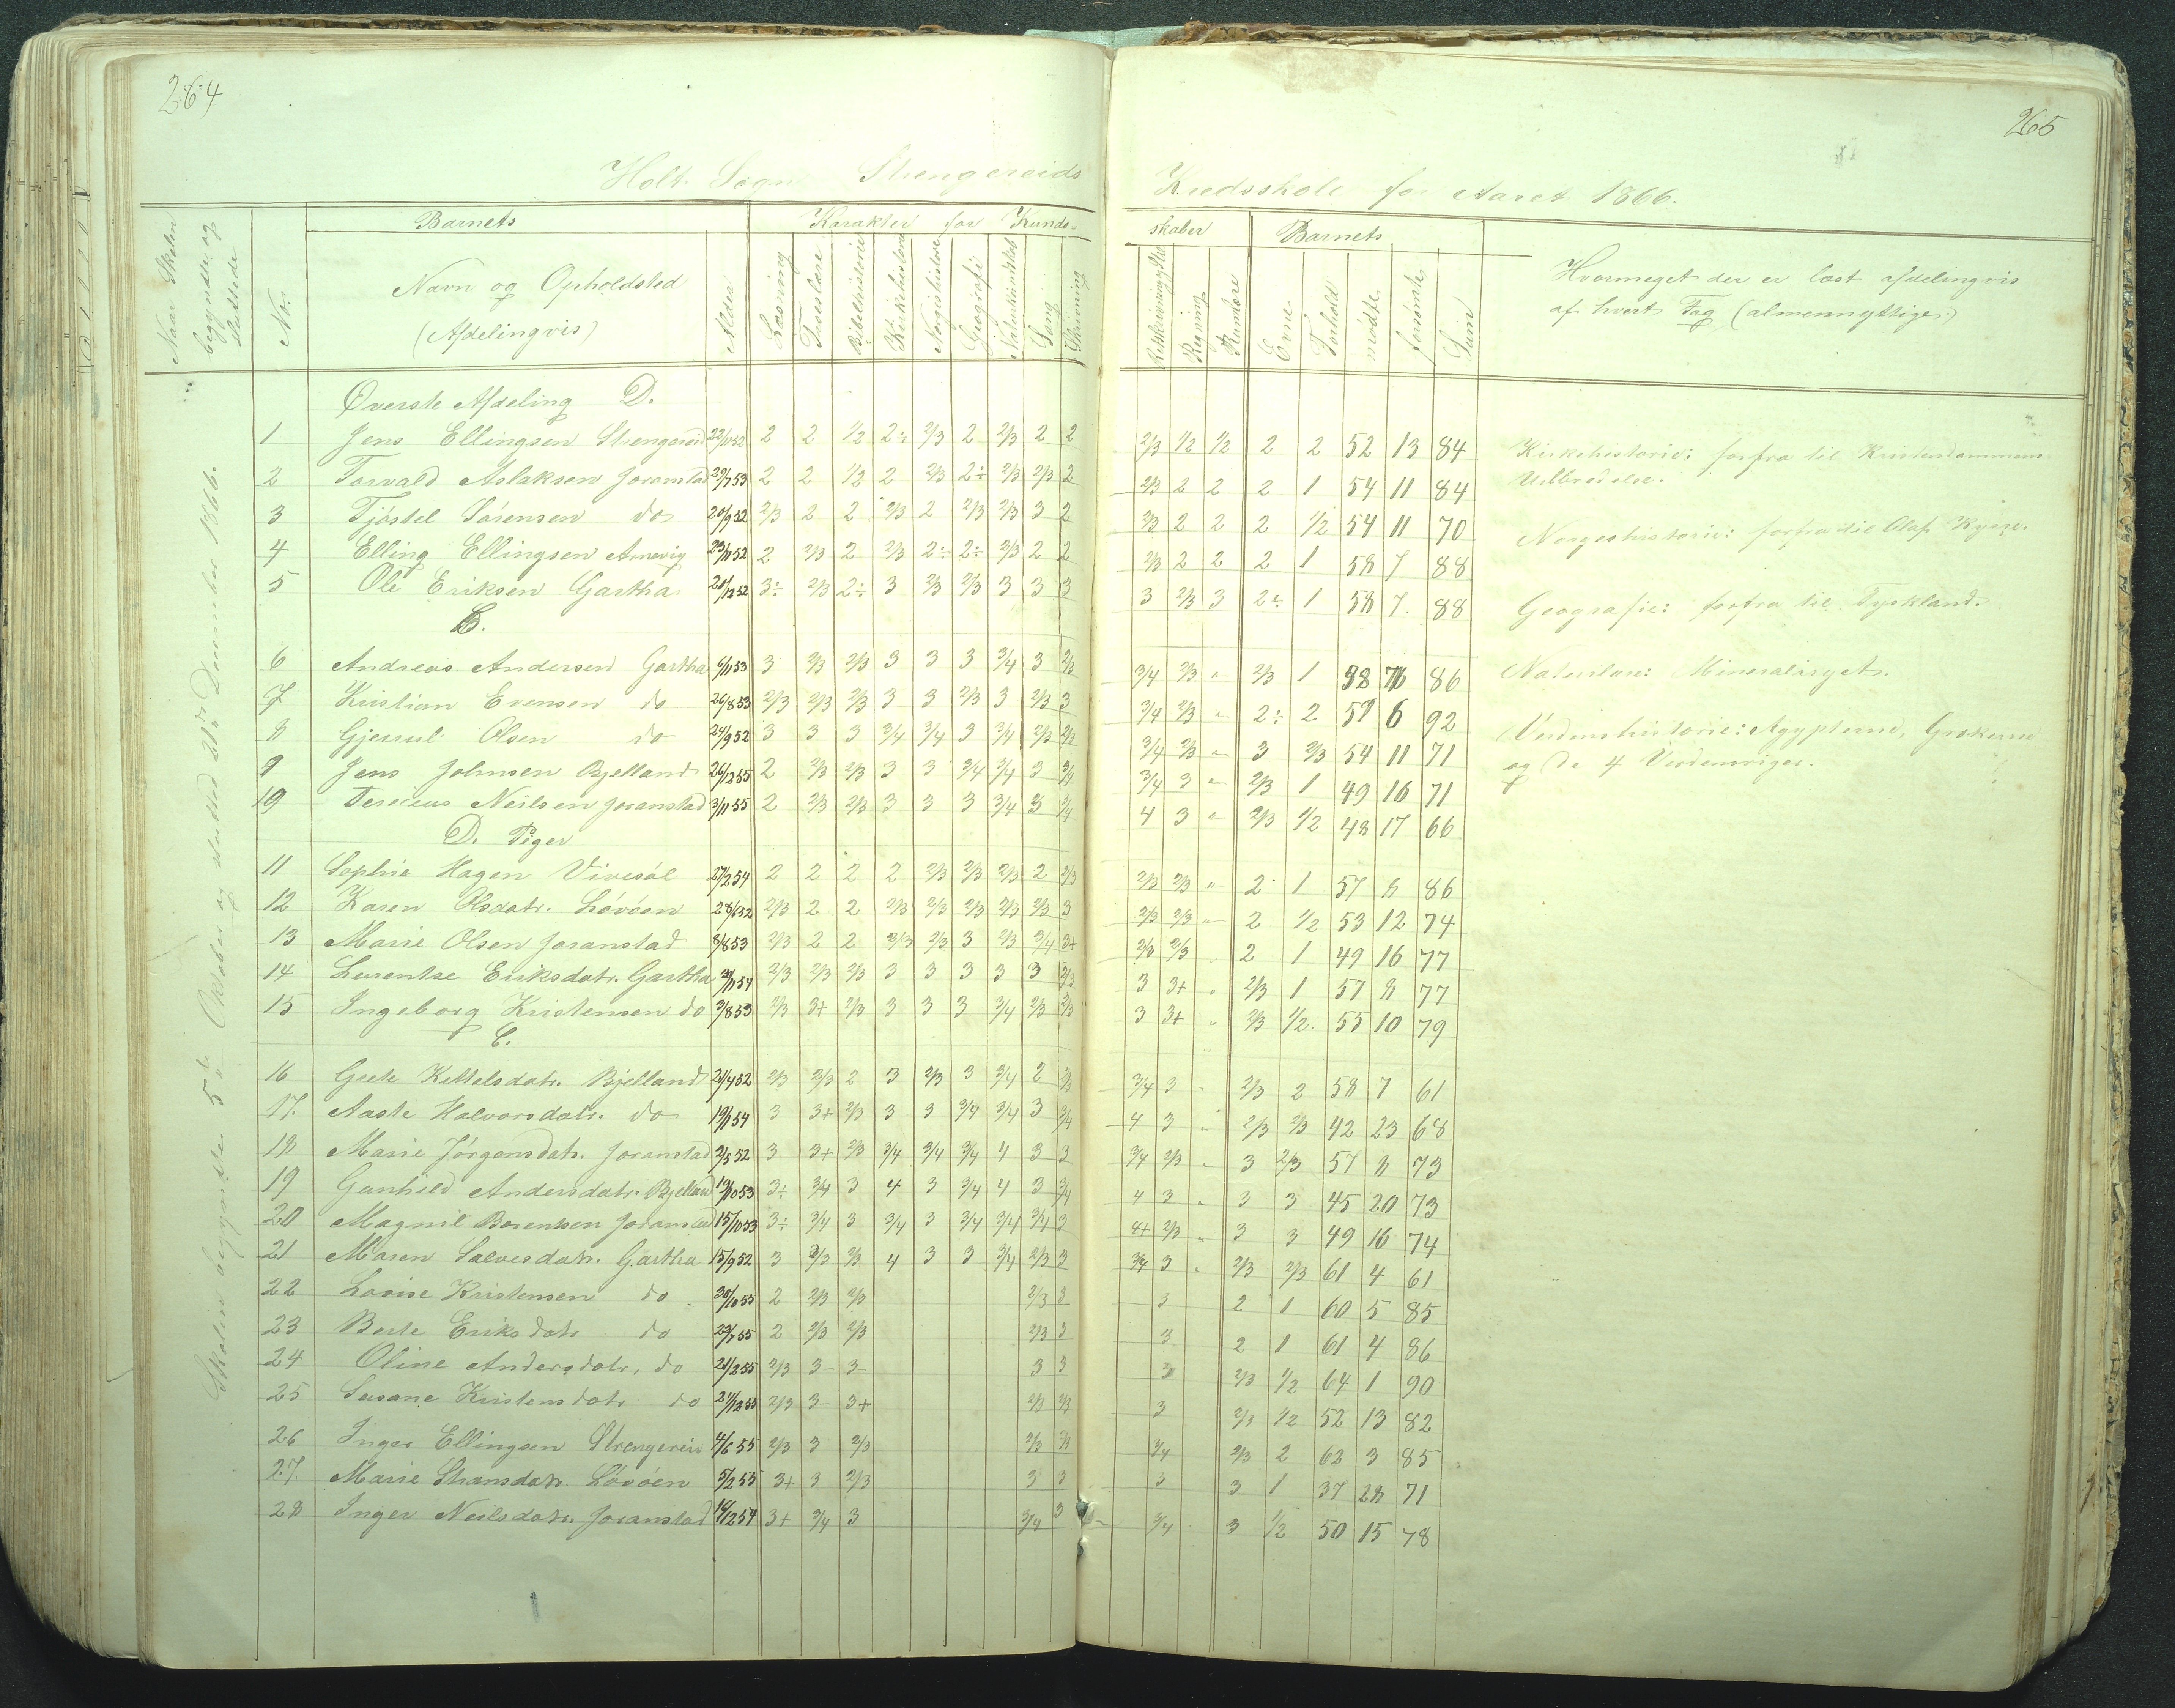 264
265
Holt Sogn Strengereids Kredsskole for Aaret 1866.
Naar Skolen begyndte og sluttede
No.
Barnets
Navn og Opholdsted
(Afdelingvis)
Alder
Karakter for Kundskaber
Læsning
Troeslære
Bibelhistorie
Kirkehistorie
Norgishistorie
Geografi
Naturkundskab
Sang
Skrivning
Retskrivning
Regning
Barnets
Evne
Forhold
mødte
forsømte
Sum
Hvormeget der er læst afdelingvis
af hvert Fag (almennyttige)
Skolen begyndte 5te Oktober og slutted 21de December 1866.
Øverste Afdeling D.
1 Jens Ellingsen Strengereid 22/11 52 2 2 1/2 2÷ 2/3 2 2/3 2 2 2/3 1/2 1/2 2 2 52 13 84
2 Torvald Aslaksen Joranstad 29/7 53 2 2 1/2 2 2/3 2÷ 2/3 2/3 2 2/3 2 2 2 1 54 11 84
3 Tjöstel Sörensen do 20/9 52 2/3 2 2 2/3 2 2/3 2/3 3 2 2/3 2 2 2 1/2 54 11 70
4 Elling Ellingsen Arnevig 23/11 52 2 2/3 2 2/3 2÷ 2÷ 2/3 2 2 2/3 2 2 2 1 58 7 88
5 Ole Eriksen Gartha 20/12 52 3÷ 2/3 2÷ 3 2/3 2/3 3 3 3 3 2/3 3 2÷ 1 58 7 88
6 Andreas Andersen Gartha 9/11 53 3 2/3 2/3 3 3 3 3/4 3 2/3 3/4 2/3 " 2/3 1 86
7 Kristian Evensen do 26/8 53 2/3 2/3 2/3 3 3 2/3 3 2/3 3 3/4 2/3 " 2÷ 2 59 6 92
8 Gjerul Olsen do 24/9 52 3 3 3 3/4 3/4 3 3/4 2/3 2/3 3/4 2/3 " 3 2/3 54 11 71
9 Jens Johnsen Bjelland 26/12 55 2 2/3 2/3 3 3 3/4 3/4 3 3/4 3/4 3 " 2/3 1 49 16 71
10 Neilsen Joranstad 3/11 55 2 2/3 2/3 3 3 3 3/4 3 3/4 4 3 " 2/3 1/2 48 17 66
D. Piger
11 Sophie Hagen Vivesöl 27/2 54 2 2 2 2 2/3 2/3 2/3 2 2/3 2/3 2/3 " 2 1 57 8 86
12 Karen Olsdatr. Lövöen 28/6 52 2/3 2 2 2/3 2/3 2/3 2/3 2/3 3 2/3 2/3 " 2 1/2 53 12 74
13 Marie Olsen Joranstad 8/8 53 2/3 2 2 2/3 2/3 3 2/3 3/4 3+ 2/3 2/3 2 1 49 16 77
14 Lurentse Eriksdatr. Gartha 2/11 54 2/3 2/3 2/3 3 3 3 3 3 2/3 3 3+ " 2/3 1 57 8 77
15 Ingeborg Kristensen do 3/8 53 2/3 3+ 2/3 3 3 3 3/4 2/3 2/3 3 3+ " 2/3 1/2 55 10 79
C.
16 Gurte Kittelsdatr. Bjelland 21/4 52 2/3 2/3 2 3 2/3 3 3/4 2 2/3 3/4 3 " 2/3 2 58 7 61
17. Aaste Halvorsdatr. do 19/11 54 3 3+ 2/3 3 3 3/4 3/4 3 3/4 4 3 " 2/3 2/3 42 23 68
18 Marie Jörgensdatr. Joranstad 2/5 52 3 3+ 2/3 3/4 3/4 3/4 4 3 3 3/4 2/3 " 3 2/3 57 8 73
19 Gunhild Andersdatr. Bjelland 19/10 53 3÷ 3/4 3 4 3 3/4 4 3 3/4 4 3 " 3 3 45 20 73
20 Magnil Borentsen Joranstad 15/10 53 3÷ 3/4 3 3/4 3 3/4 3/4 3/4 3 4+ 2/3 " 3 3 49 16 74
21 Maren Salvesdatr. Gartha 15/9 52 3 2/3 2/3 4 3 3 3/4 2/3 3 3/4 3 " 2/3 2/3 61 4 61
22 Lovise Kristensen do 30/10 55 2 2/3 2/3 2/3 3 3 2 1 60 5 85
23 Berte Eriksdatr do 22/7 55 2 2/3 2/3 2/3 3 3 2 1 61 4 86
24 Oline Andersdatr. do 21/2 55 2/3 3 3 3 3 3 2/3 1/2 64 1 90
25 Susane Kristensdatr do 24/12 55 2/3 3 3+ 2/3 2/3 3 2/3 1/2 52 13 82
26 Inger Ellingsen Strengereid 4/6 55 2/3 3 2/3 2/3 3/4 2/3 2 62 3 85
27. Marie Lövöen 5/2 55 3+ 3 2/3 3 3 3 3 1 37 28 71
28 Inger Neilsdatr. Joranstad 14/12 54 3+ 3/4 3 3/4 3 3/4 3 1/2 50 15 78
Kirkehistorie: forfra til Kristendommens
Udbredelse.
Norgeshistorie: forfra til Olaf Kyrre.
Geografie: forfra til Tyskland.
Naturlære: Mineralriget.
Verdenshistorie: Ægypterne, Grækerne
og de 4 Verdensriger.